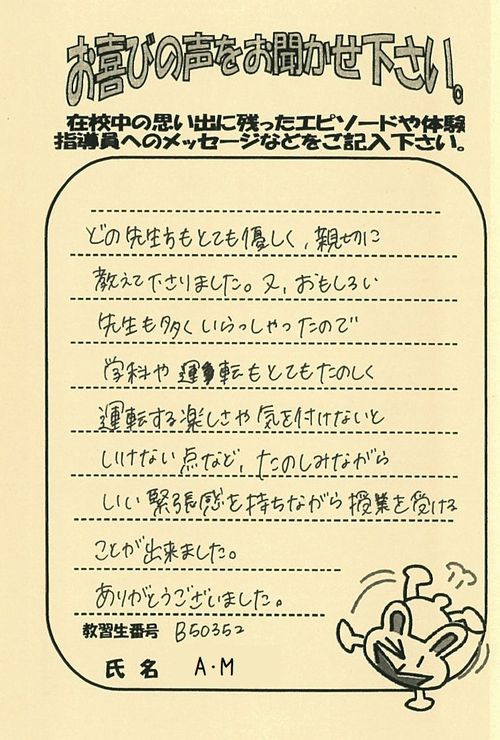 お喜びの声をお聞かせ下さい。
在校中の思い出に残ったエピソードや体験
指導員へのメッセージなどをご記入下さい。
どの先生もとても優しく、親切に
教えて下さりました。又、おもしろい
先生も多くいらっしゃったので
学科や運転もとてもたのしく
運転する楽しさや気を付けないと
いけない点など、たのしみながら
いい緊張感を持ちながら授業を受ける
ことが出来ました。
ありがとうございました。
教習生番号 B50352
氏名 A.M